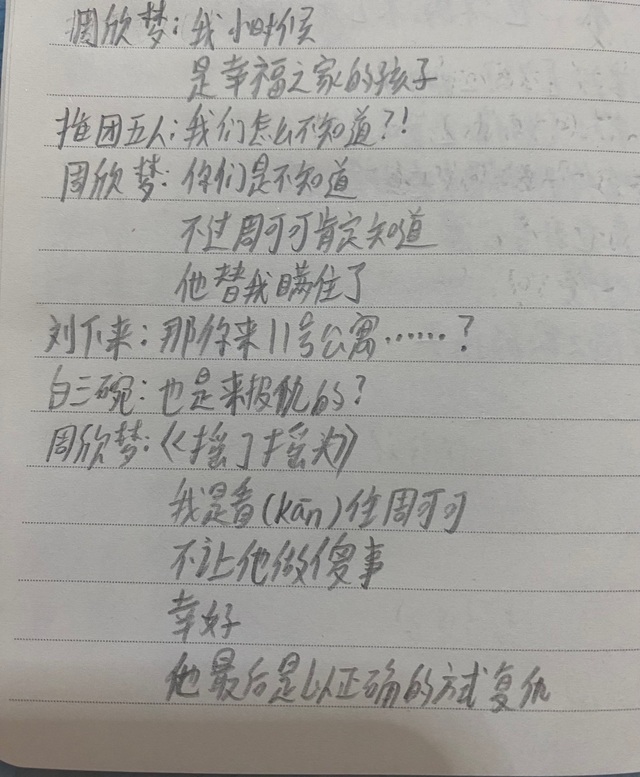 周欣梦：我小时候
是幸福之家的孩子
推团五人：我们怎么不知道？！
周欣梦：你们是不知道
不过周可可肯定知道
他替我瞒住了
刘下来：那你来11号公寓……？
白三碗：也是来报仇的？
周欣梦：《摇了摇头》
我是看(kān)住周可可
不让他做傻事
幸好
他最后是以正确的方式复仇